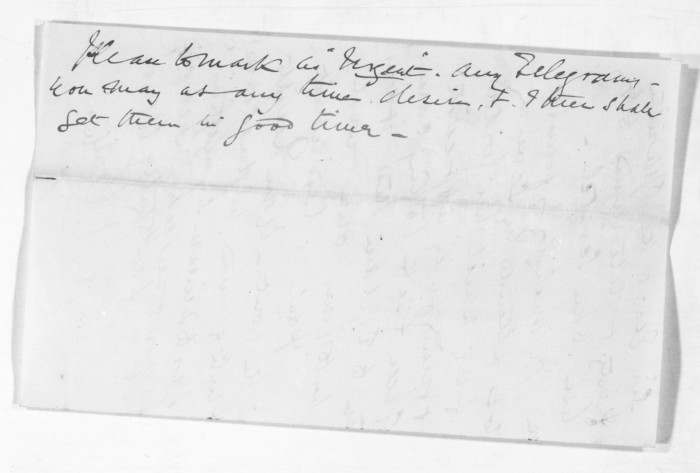 Mean to mark as "Urgent". any Telegrams -
you may at any time desire, & I then shall
get them in good time -